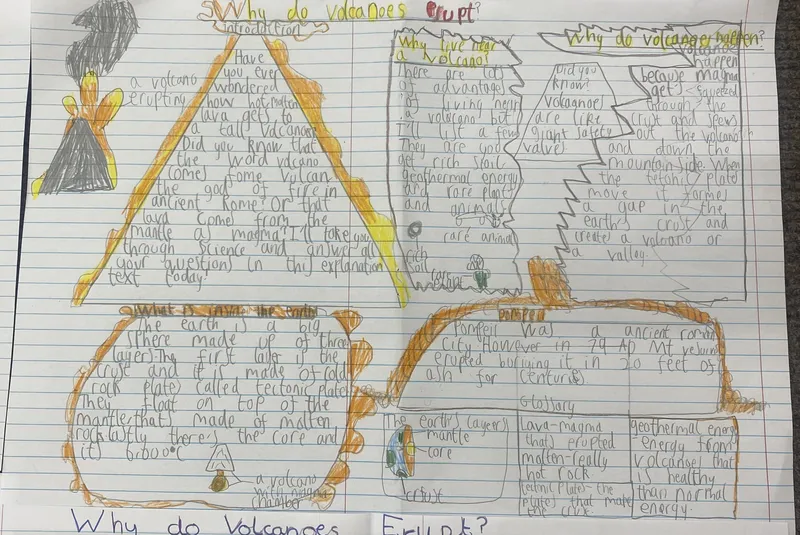 Why do volcanoes erupt?
introduction
Have
you ever
wondered
how hot molten
lava gets to
a tall volcanoe?
Did you know that
the word volcano
comes fome vulcan
the god of fire in
ancient Rome? Or that
lava comes from the
mantle as magma? I'll take you
through science and answer all
your questions in this explanation
text today?
a volcano
erupting
Why live near
a volcano?
There are lots
of advantages
of living near
a volcano but
I'll list a few
They are you
get rich
geothermal energy
and rare plants
and animals
rare animal
rich
soil
Did you
know?
volcanoes
are like
giant safety
valves
Why do volcanoes happen?
happen
because magma
gets squeezed
through the
crust and
out the volcano
and down the
mountainside. When
the plate
move it formes
a gap in the
earth's crust and
create a volcano or
a valley.
What is inside the earth
The earth is a big
sphere made up of three
layers. The first layer is the
crust and it is made of cold
rock plates called tectonic plates
They float on top of the
mantle that's made of molten
rock lastly there's the core and
it's
a volcano
with magma
chamber
Pompeii
Pompeii was a ancient roman
City However in 79 AD Mt
erupted burying it in 20 feet of
ash for centuries
Glossary
The earth's layers
mantle
core
crust
lava-magma
that's erupted
molten-really
hot rock
tectonic plates-the
plates that make
the crust.
geothermal energy
energy from
volcanoes that
is healthy
than normal
energy.
Why do Volcanoes Erupt?